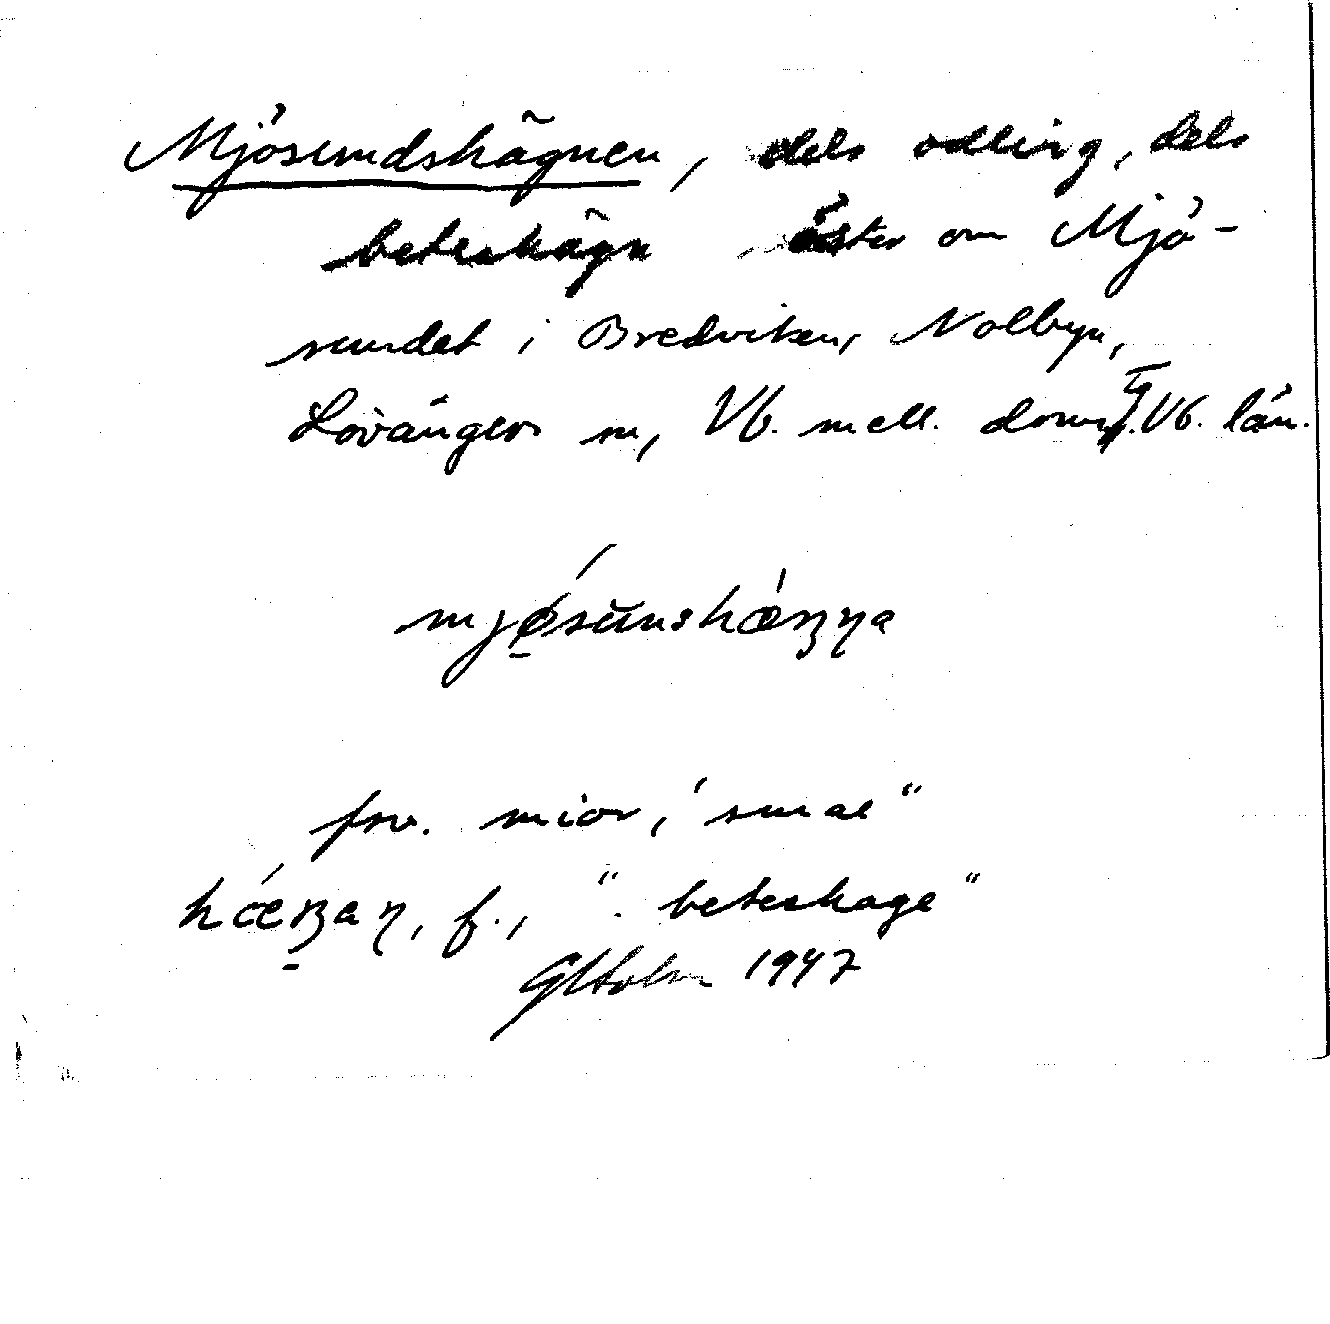 Mjösundshägnen, dels odling, dels
beteshägn öster om Mjö-
sundet i Bredviken, Nolbyn,
Lövånger sn, Vb. mell. doms. Vb. län.
mjǿsŭnshǽŋŋa
fsv. mior, "smal"
hǽŋaŋ, f., "beteshage"
1947